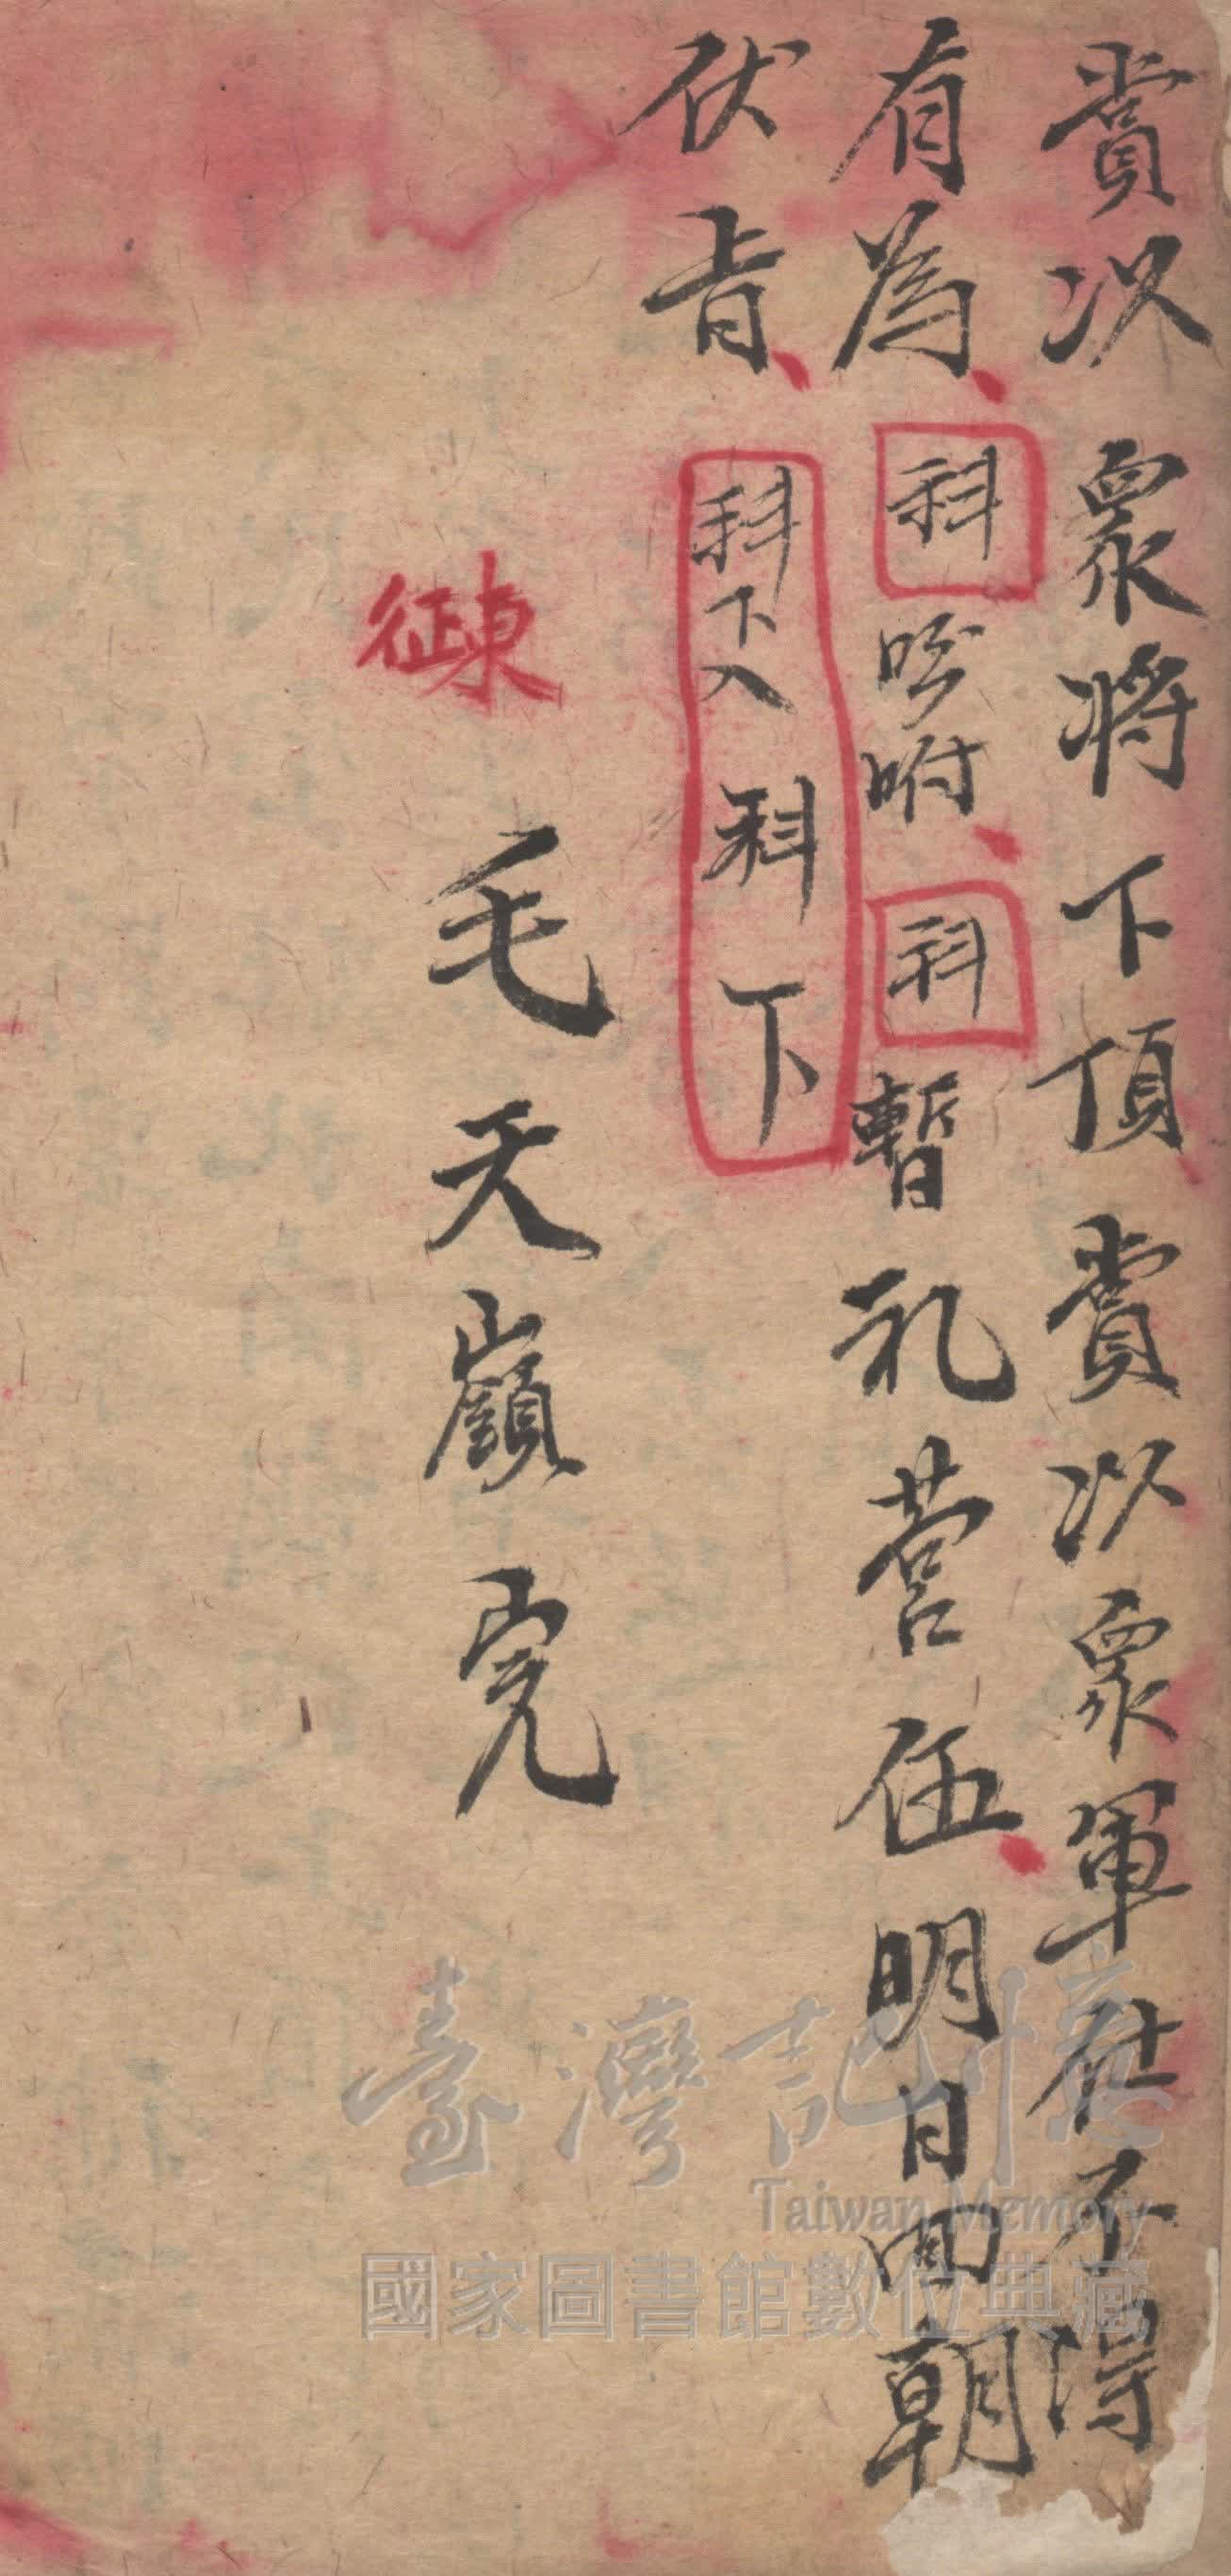 賞以眾將下頂賞以眾軍在不得
有為、科吩咐、科暫礼营伍、明日回朝
伏旨、科下入科下
征東
毛天嶺完
臺灣記憶
Taiwan Memory
國家圖書館數位典藏